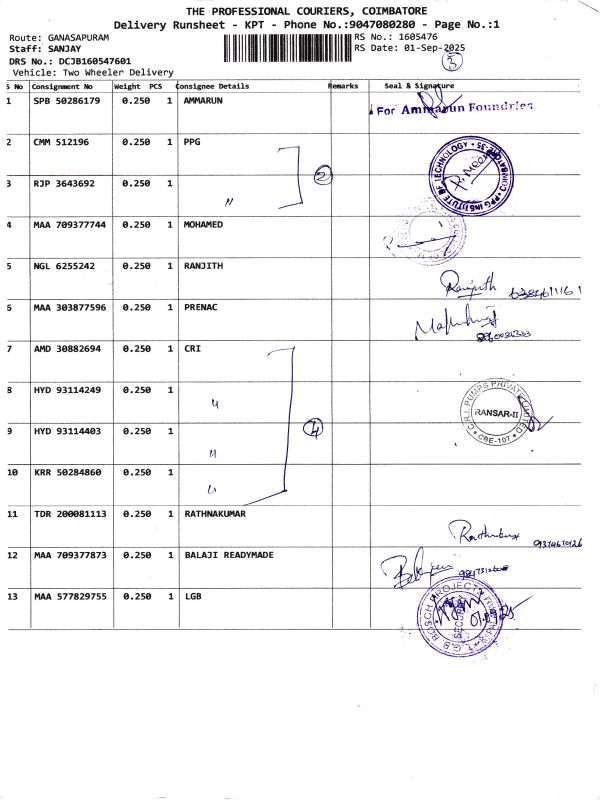 THE PROFESSIONAL COURIERS, COIMBATORE
Delivery Runsheet - KPT - Phone No.:9047080280 - Page No.:1
Route: GANASAPURAM
RS No.: 1605476
Staff: SANJAY
RS Date: 01-Sep-2025
DRS No.: DCJB160547601
3
Vehicle: Two Wheeler Delivery
S No Consignment No Weight PCS Consignee Details Remarks Seal & Signature
1 SPB 50286179 0.250 1 AMMARUN
For Ammarun Foundries
2 CMM 512196 0.250 1 PPG
2
PPG INSTITUTE OF TECHNOLOGY
3 RJP 3643692 0.250 1 "
4 MAA 709377744 0.250 1 MOHAMED
5 NGL 6255242 0.250 1 RANJITH
Ranjith
6 MAA 303877596 0.250 1 PRENAC
7 AMD 30882694 0.250 1 CRI
8 HYD 93114249 0.250 1 "
C.R.I. PUMPS PRIVATE LIMITED
RANSAR-II
CBE-107
4
9 HYD 93114403 0.250 1 "
10 KRR 50284860 0.250 1 "
11 TDR 200081113 0.250 1 RATHNAKUMAR
12 MAA 709377873 0.250 1 BALAJI READYMADE
13 MAA 577829755 0.250 1 LGB